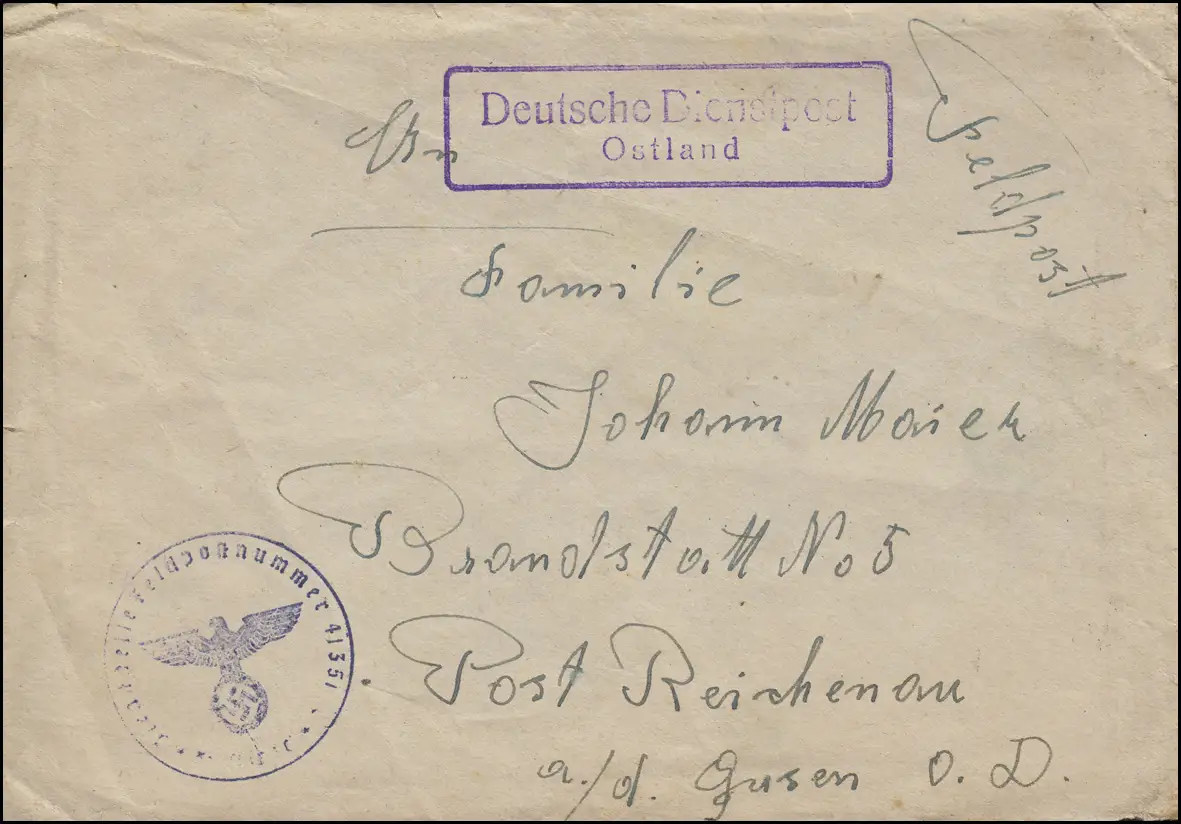 Deutsche Dienstpost
Ostland
Feldpost
An
Familie
Johann Maier
Brandstatt No 5
Post Reichenau
a./d. Gusen O. D.
Feldpostnummer 41351